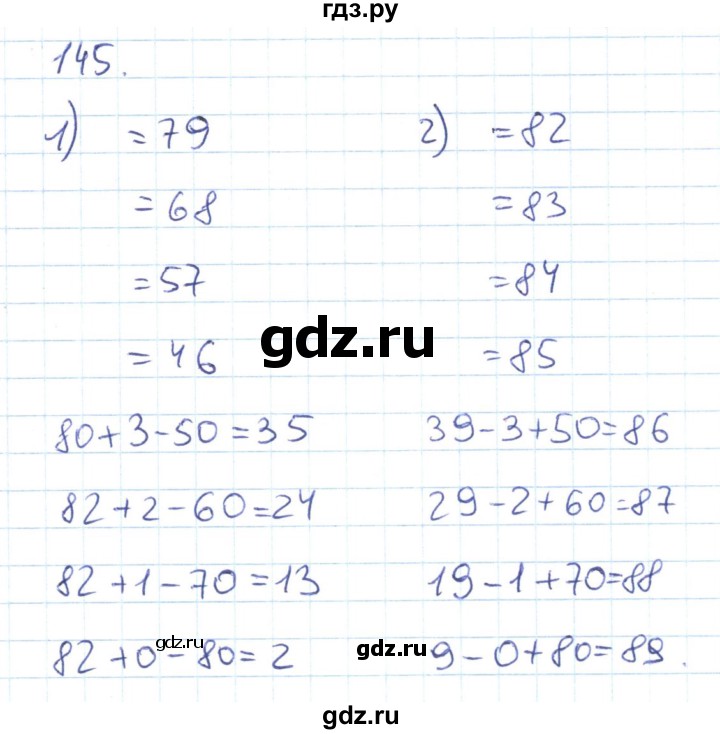 гдз.ру
145.
1) = 79 2) = 82
= 68 = 83
= 57 = 84
= 46 = 85
gdz.ru
80+3-50=35 39-3+50=86
82+2-60=24 29-2+60=87
82+1-70=13 19-1+70=88
82+0-80=2 9-0+80=89.
gdz.ru gdz.ru
gdz.ru